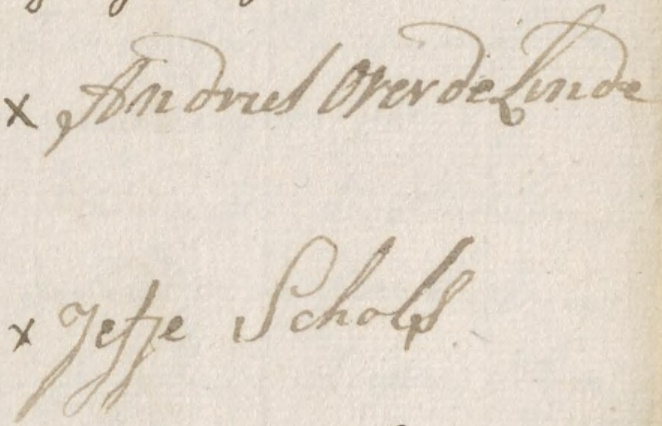 x Andries Over de Linde
x Jetje Schols